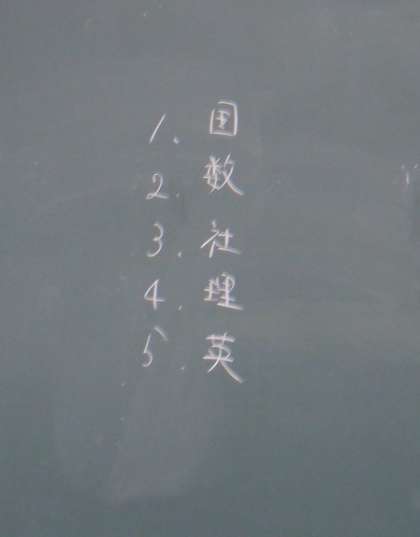 1. 国
2. 数
3. 社
4. 理
5. 英